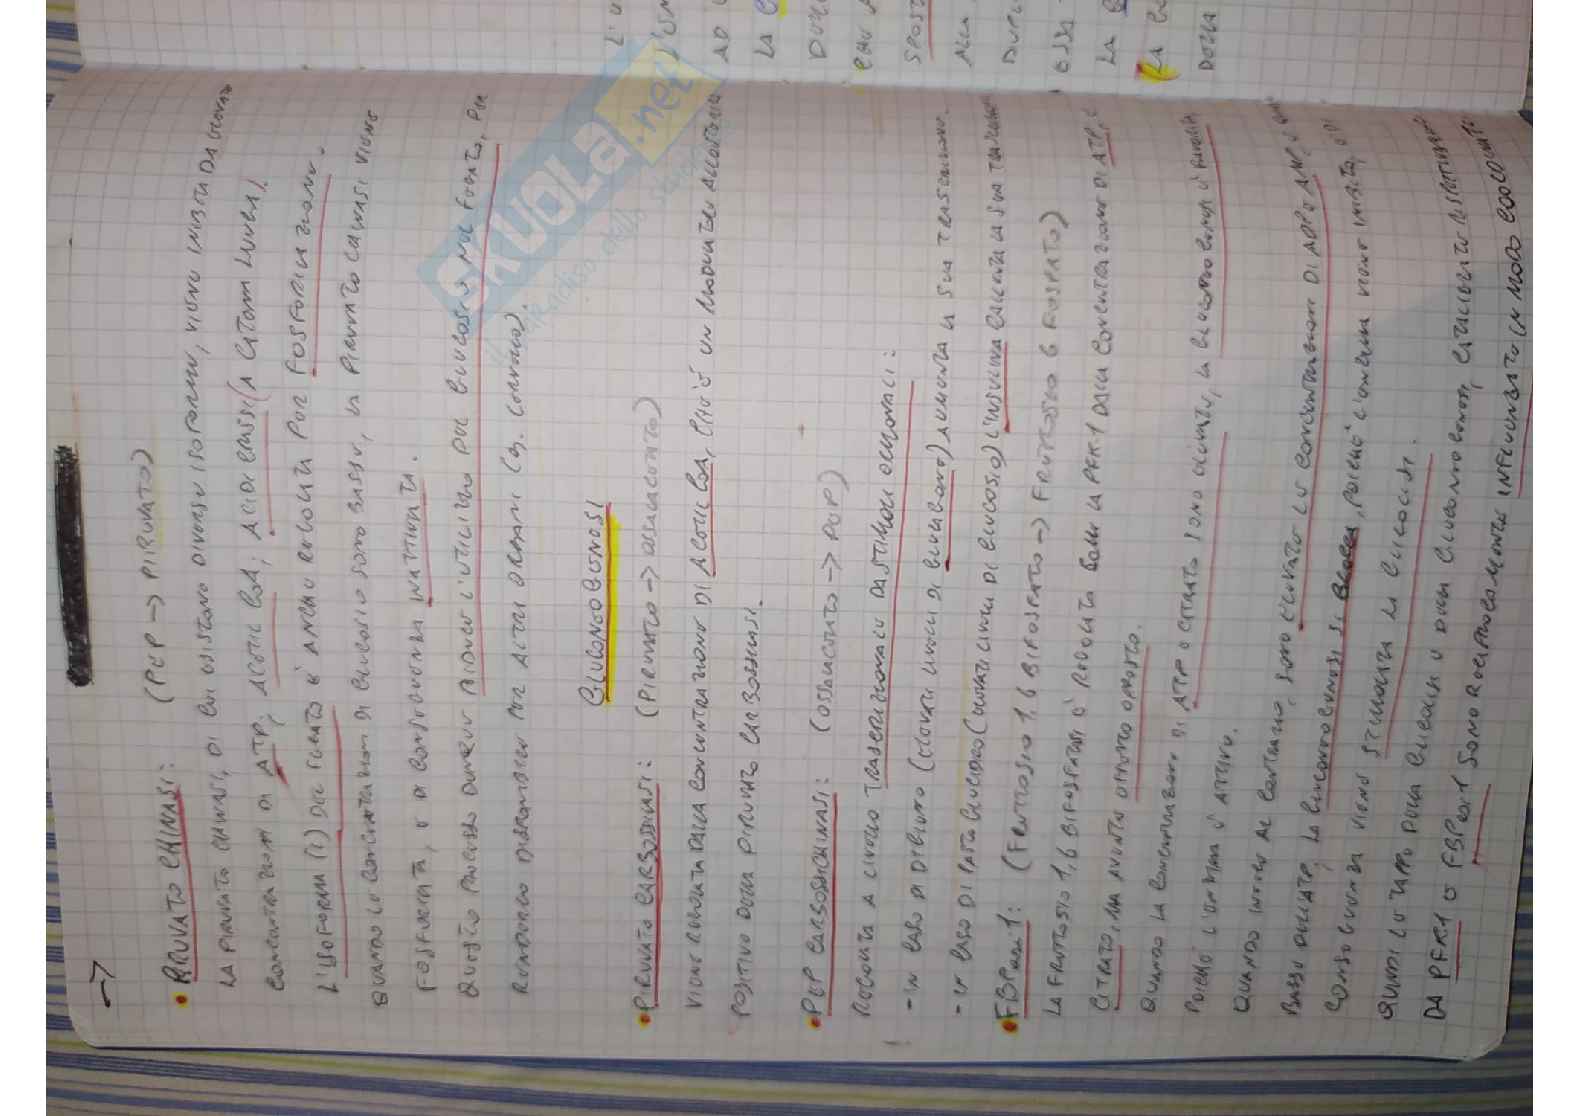 →
• PIRUVATO CHINASI: (PEP → PIRUVATO)
LA PIRUVATO CHINASI, DI CUI ESISTONO DIVERSE ISOFORME, VIENE INIBITA DA ELEVATE
CONCENTRAZIONI DI ATP, ACETIL COA, ACIDI GRASSI (A CATENA LUNGA).
L'ISOFORMA (L) DEL FEGATO È ANCHE REGOLATA PER FOSFORILAZIONE.
QUANDO LE CONCENTRAZIONI DI GLUCOSIO SONO BASSE, LA PIRUVATO CHINASI VIENE
FOSFORILATA, E DI CONSEGUENZA INATTIVATA.
QUESTO PROCESSO DUNQUE RIDUCE L'UTILIZZO DEL GLUCOSIO NEL FEGATO, PER
RENDERLO DISPONIBILE PER ALTRI ORGANI (ES. CERVELLO).
GLUCONEOGENESI
• PIRUVATO CARBOSSILASI: (PIRUVATO → OSSALACETATO)
VIENE REGOLATA DALLA CONCENTRAZIONE DI ACETIL COA, CHE È UN MODULATORE ALLOSTERICO
POSITIVO DELLA PIRUVATO CARBOSSILASI.
• PEP CARBOSSICHINASI: (OSSALACETATO → PEP)
REGOLATA A LIVELLO TRASCRIZIONALE DA STIMOLI ORMONALI:
- IN CASO DI DIGIUNO (ELEVATI LIVELLI DI GLUCAGONE) AUMENTA LA SUA TRASCRIZIONE.
- IN CASO DI PASTO GLUCIDICO (ELEVATI LIVELLI DI GLUCOSIO) L'INSULINA RALLENTA LA SUA TRASCRIZIONE
• FBPasi 1: (FRUTTOSIO 1,6 BIFOSFATO → FRUTTOSIO 6 FOSFATO)
LA FRUTTOSIO 1,6 BIFOSFATASI È REGOLATA COME LA PFK-1 DALLA CONCENTRAZIONE DI ATP, E
CITRATO, MA AVENTE EFFETTO OPPOSTO.
QUANDO LA CONCENTRAZIONE DI ATP E CITRATO SONO ELEVATE, LA GLUCONEOGENESI È FAVORITA,
POICHÉ L'ENZIMA È ATTIVO.
QUANDO INVECE AL CONTRARIO, SONO ELEVATE LE CONCENTRAZIONI DI ADP O AMP, E SONO
BASSE QUELLE ATP, LA GLUCONEOGENESI SI BLOCCA, POICHÉ L'ENZIMA VIENE INIBITO, E DI
CONSEGUENZA VIENE STIMOLATA LA GLICOLISI.
QUINDI LE TAPPE DELLA GLICOLISI E DELLA GLUCONEOGENESI, CATALIZZATE RISPETTIVAMENTE
DA PFK-1 E FBPasi 1 SONO RECIPROCAMENTE INFLUENZATE IN MODO COORDINATO
SKUOLA.net
il paradiso dello studente
L'U
AD
LA
DURA
CHE A
SPOST
ALLA
DUPL
ESSA
LA
LA
DELLA